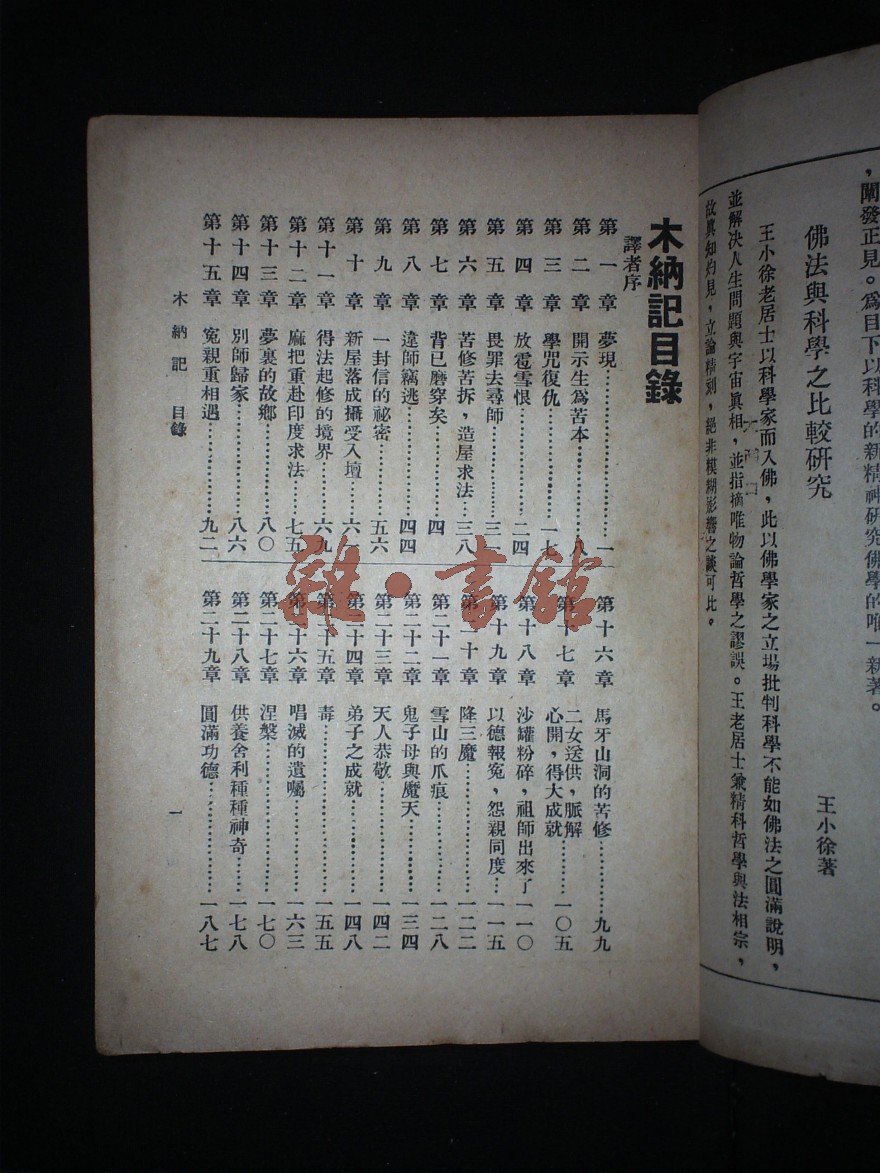 ，闡發正見。爲目下以科學的新精神研究佛學的唯一新著。
佛法與科學之比較研究
王小徐著
王小徐老居士以科學家而入佛，此以佛學家之立場批判科學不能如佛法之圓滿說明，
並解決人生問題與宇宙眞相，並指摘唯物論哲學之謬誤。王老居士兼精科哲學與法相宗，
故眞知灼見，立論精刻，絕非模糊影響之談可比。
木納記目錄
譯者序
第一章 夢現…………一
第二章 開示生爲苦本…………八
第三章 學咒復仇…………一七
第四章 放雹雪恨…………二四
第五章 畏罪去尋師…………三一
第六章 苦修苦拆，造屋求法…三八
第七章 背已磨穿矣…………四
第八章 違師竊逃…………四四
第九章 一封信的祕密…………五六
第十章 新屋落成攝受入壇…………六
第十一章 得法起修的境界…………六九
第十二章 麻把重赴印度求法…………七五
第十三章 夢裏的故鄉…………八〇
第十四章 別師歸家…………八六
第十五章 寃親重相遇…………九二
第十六章 馬牙山洞的苦修…………九九
十七章 二女送供，脈解心開，得大成就…………一〇五
第十八章 沙罐粉碎，祖師出來了 一一〇
第十九章 以德報寃，怨親同度…一一五
第二十章 降三魔…………一二二
第二十一章 雪山的爪痕…………一二八
第二十二章 鬼子母與魔天…………一三四
第二十三章 天人恭敬…………一四二
第二十四章 弟子之成就…………一四八
第二十五章 毒…………一五五
第二十六章 唱滅的遺囑…………一六三
第二十七章 涅槃…………一七〇
第二十八章 供養舍利種種神奇……一七八
第二十九章 圓滿功德…………一八七
木納記 目錄
一
雜·書館